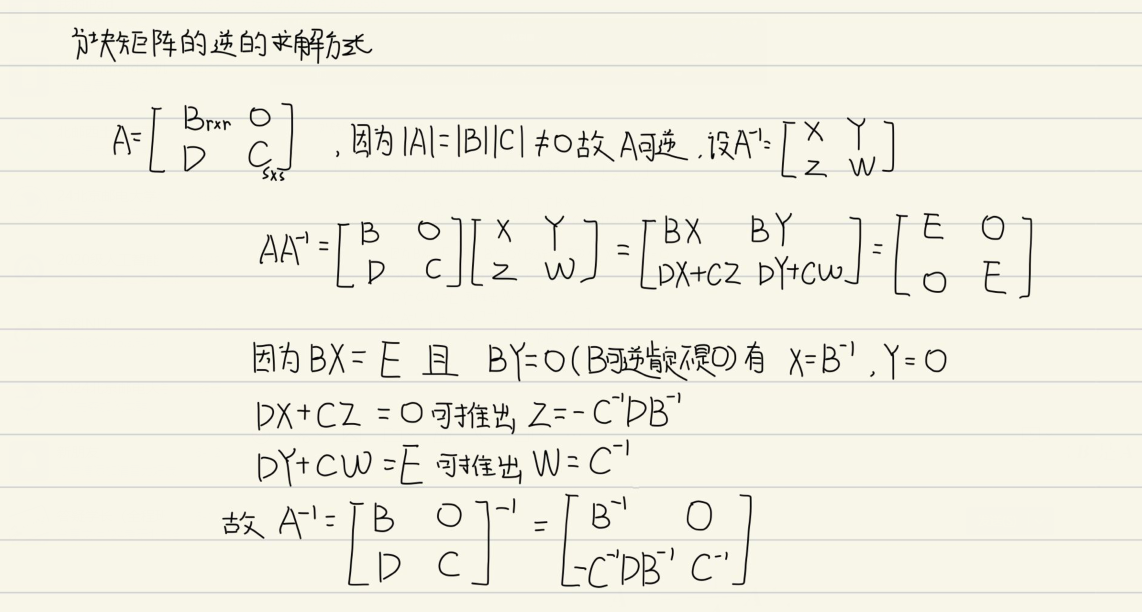 分块矩阵的逆的求解方式
A=[ Br×r O
D Cs×s ] ,因为|A|=|B||C|≠0故A可逆.设A⁻¹=[ X Y
Z W ]
AA⁻¹=[ B O
D C ][ X Y
Z W ] = [ BX BY
DX+CZ DY+CW ] = [ E O
O E ]
因为BX=E 且 BY=0(B可逆肯定不是0)有 X=B⁻¹,Y=0
DX+CZ=0可推出 Z=-C⁻¹DB⁻¹
DY+CW=E 可推出 W=C⁻¹
故 A⁻¹=[ B O
D C ]⁻¹ = [ B⁻¹ O
-C⁻¹DB⁻¹ C⁻¹ ]